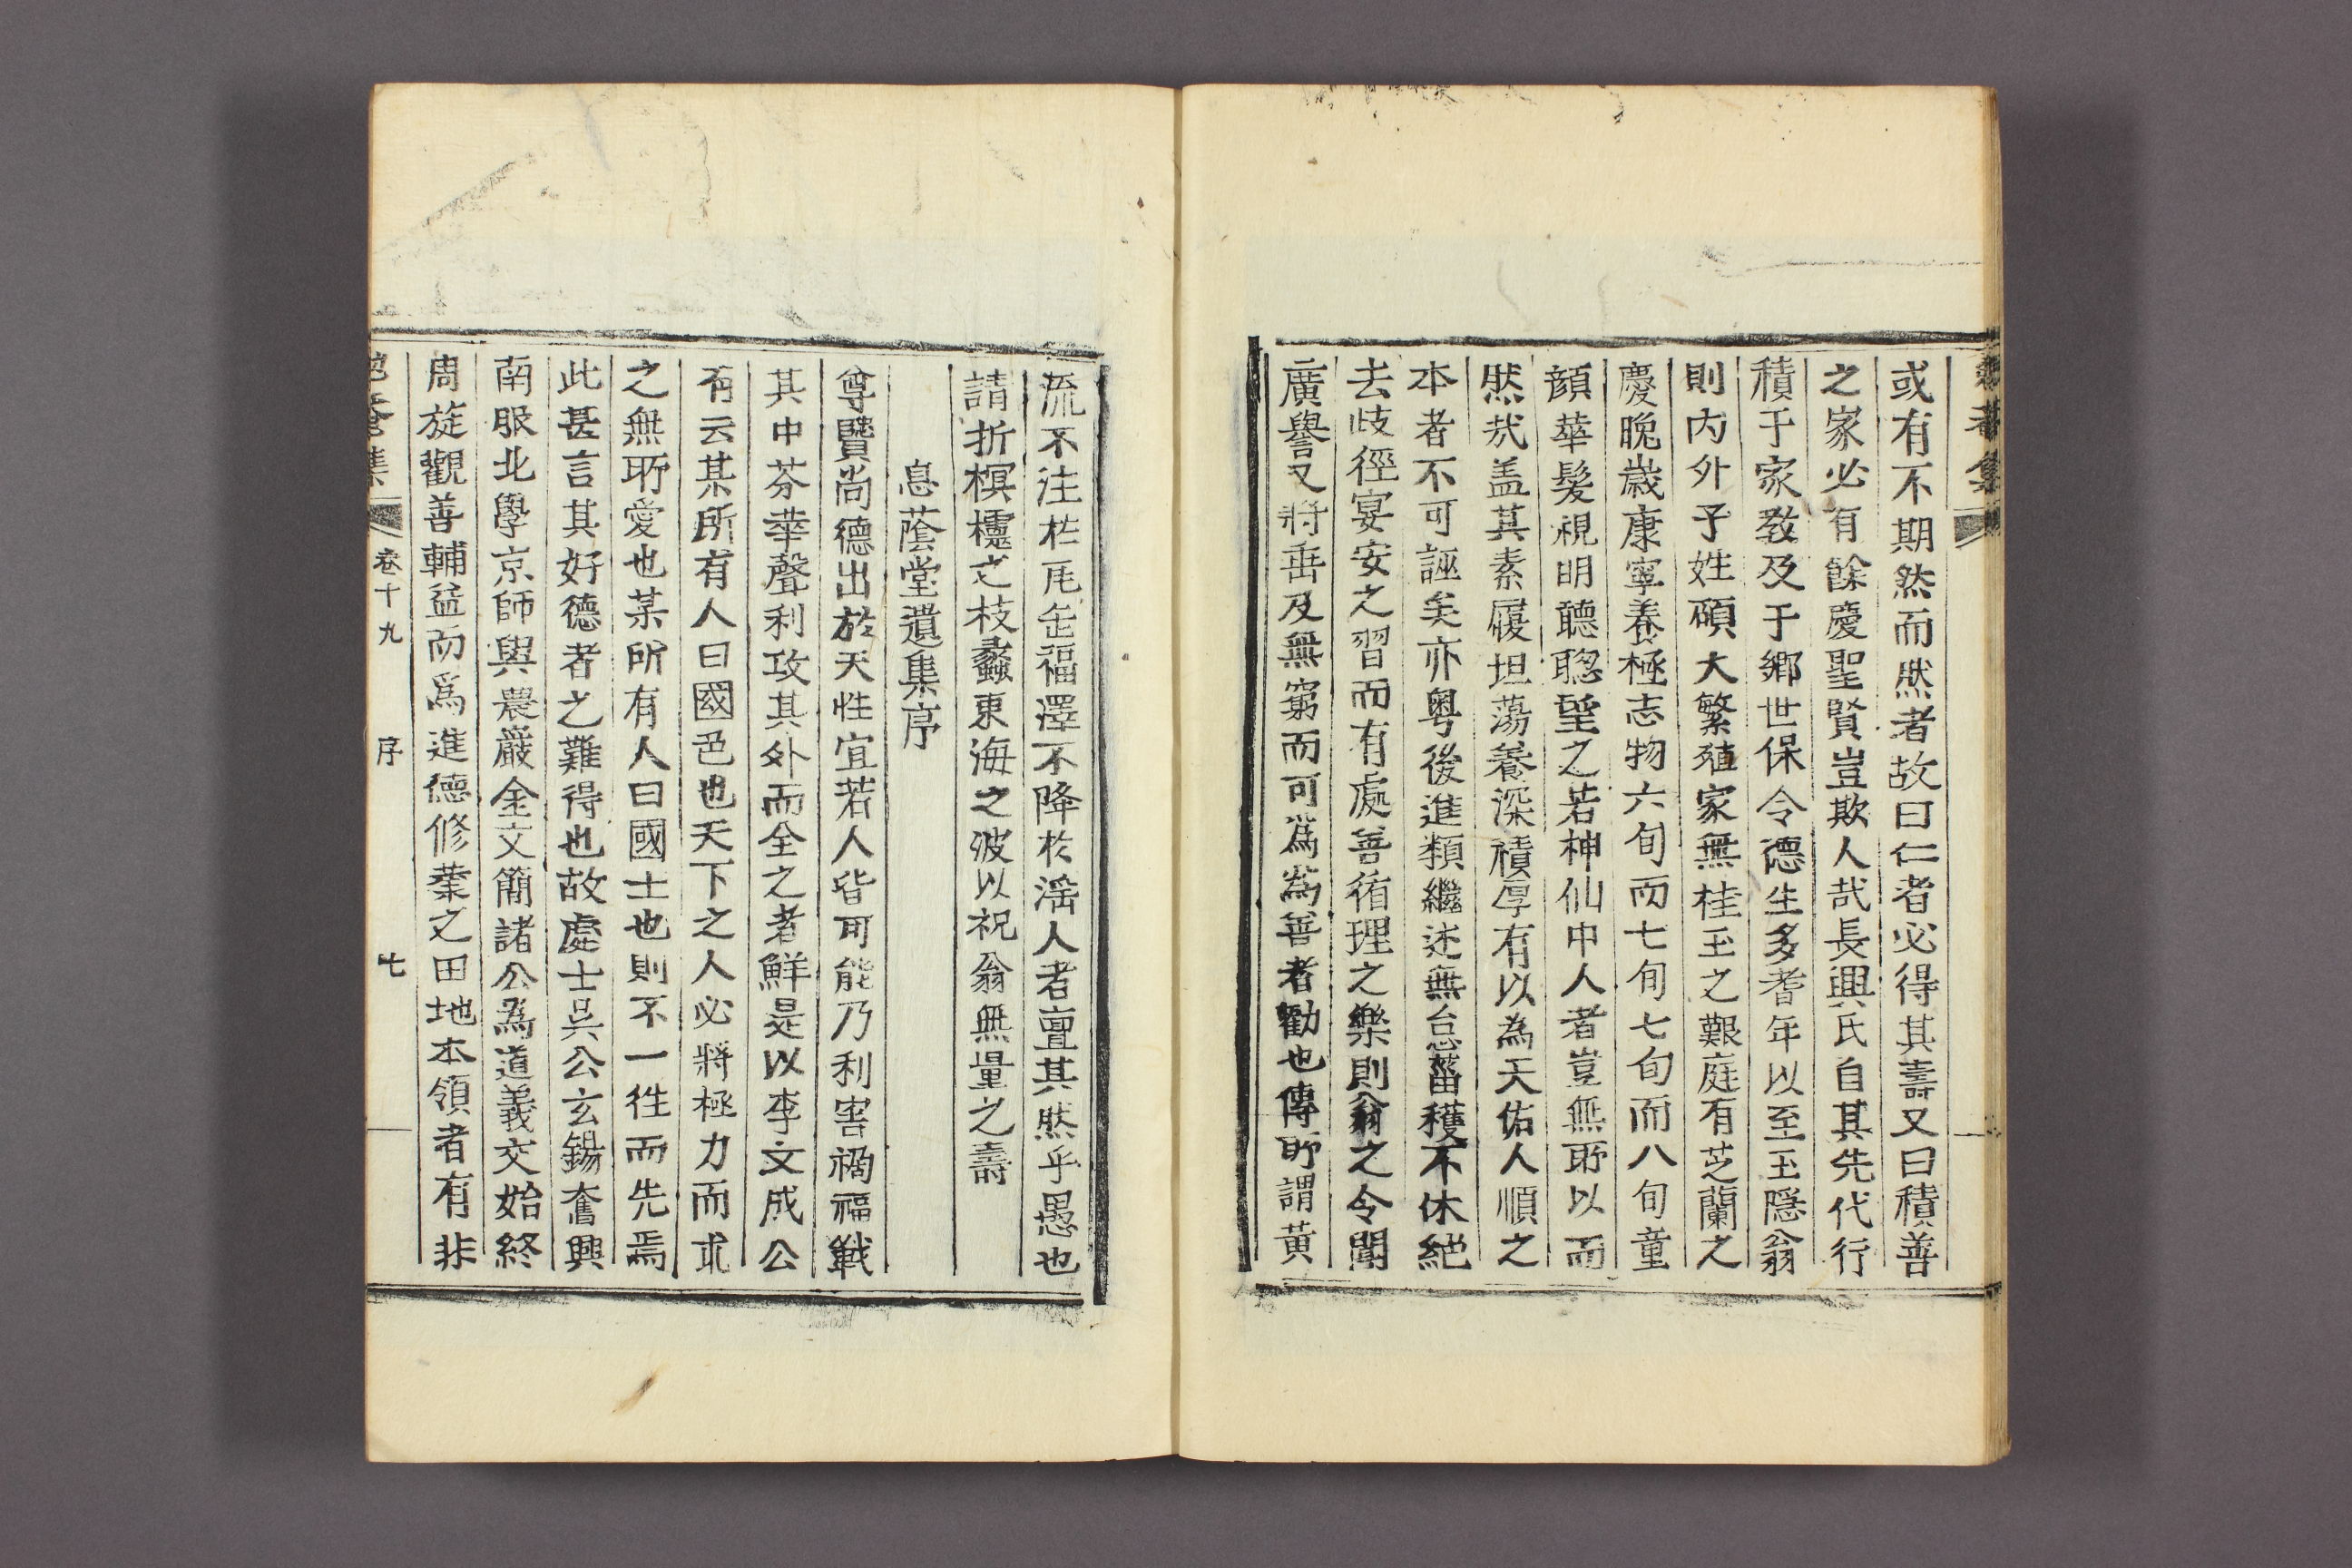 或有不期然而然者故曰仁者必得其壽又曰積善
之家必有餘慶聖賢豈欺人哉長興氏自其先代行
積于家敎及于鄕世保令德生多耆年以至玉隱翁
則內外子姓碩大繁殖家無桂玉之艱庭有芝蘭之
慶晚歲康寧養極志物六旬而七旬七旬而八旬童
顔華髮視明聽聦望之若神仙中人者豈無所以而
然哉盖其素履坦蕩養深積厚有以為天佑人順之
本者不可誣矣亦粤後進類繼述無怠菑穫不休絶
去歧徑宴安之習而有處善循理之樂則翁之令聞
廣譽又將垂及無窮而可爲爲善者勸也傳所謂黃
流不注於瓦缶福澤不降於淫人者亶其然乎愚也
請折榠櫨之枝蠡東海之波以祝翁無量之壽
息蔭堂遺集序
尊賢尚德出於天性宜若人皆可能乃利害禍福戰
其中芬華聲利攻其外而全之者鮮是以李文成公
有云某所有人曰國色也天下之人必將極力而求
之無所愛也某所有人曰國士也則不一徃而先焉
此甚言其好德者之難得也故處士吳公玄錫奮興
南服北學京師與農巖金文簡諸公爲道義交始終
周旋觀善輔益而爲進德修業之田地本領者有非
集 卷十九 序 七